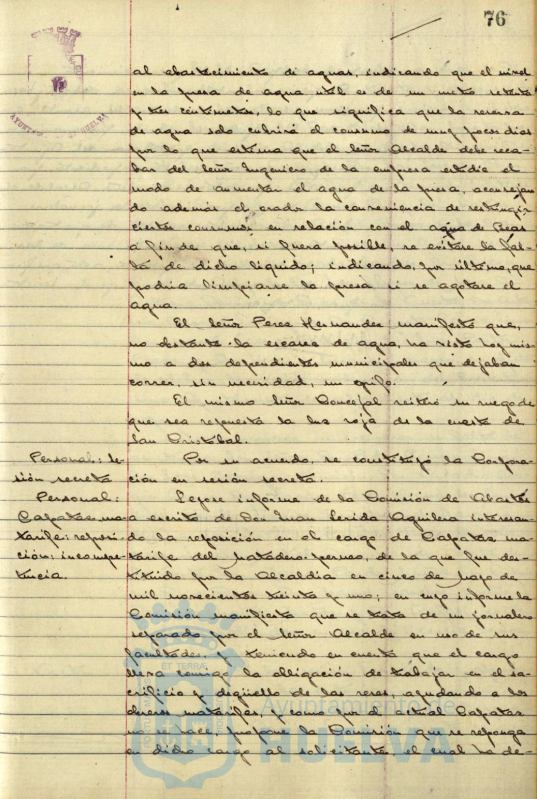 76
al abastecimiento de aguas, indicando que el nivel
en la presa de agua util es de un metro setenta
y tres centímetros, lo que significa que la reserva
de agua solo cubrirá el consumo de muy pocos dias
por lo que estima que el Señor Alcalde debe reca-
bar del Señor Ingeniero de la empresa estudie el
modo de aumentar el agua de la presa, aconsejan
do además el orador la conveniencia de restringir
ciertos consumos en relación con el agua de Beas
a fin de que, si fuera posible, se evitare la fal-
ta de dicho liquido; indicando, por último, que
podria limpiarse la presa si se agotare el
agua.
El Señor Perez Hernandez manifestó que,
no obstante la escasez de agua, ha visto hoy mis-
mo a dos dependientes municipales que dejaban
correr, sin necesidad, un grifo.
El mismo Señor Concejal reiteró su ruego de
que sea repuesta la luz roja de la cuesta de
San Cristobal.
Personal: se-
sión secreta
Por su acuerdo, se constituyó la Corpora-
ción en sesión secreta.
Personal:
Capataz ma-
tarife: reposi-
ción: incompe-
tencia.
Leyose informe de la Comisión de Abastos
a escrito de Don Juan Lerida Aguilera interesan-
do la reposición en el cargo de Capataz ma-
tarife del Matadero publico, de la que fue des-
tituido por la Alcaldia en cinco de Mayo de
mil novecientos treinta y uno; en cuyo informe la
Comisión manifiesta que se trata de un jornalero
separado por el Señor Alcalde en uso de sus
facultades, y teniendo en cuenta que el cargo
lleva consigo la obligación de trabajar en el sa-
crificio y degüello de las reses, ayudando a los
demas matarifes, y como por el actual Capataz
no se hace, propone la Comisión que se reponga
en dicho cargo al solicitante, el cual ha de-
ET TERRÆ
Ayuntamiento de
HUELVA